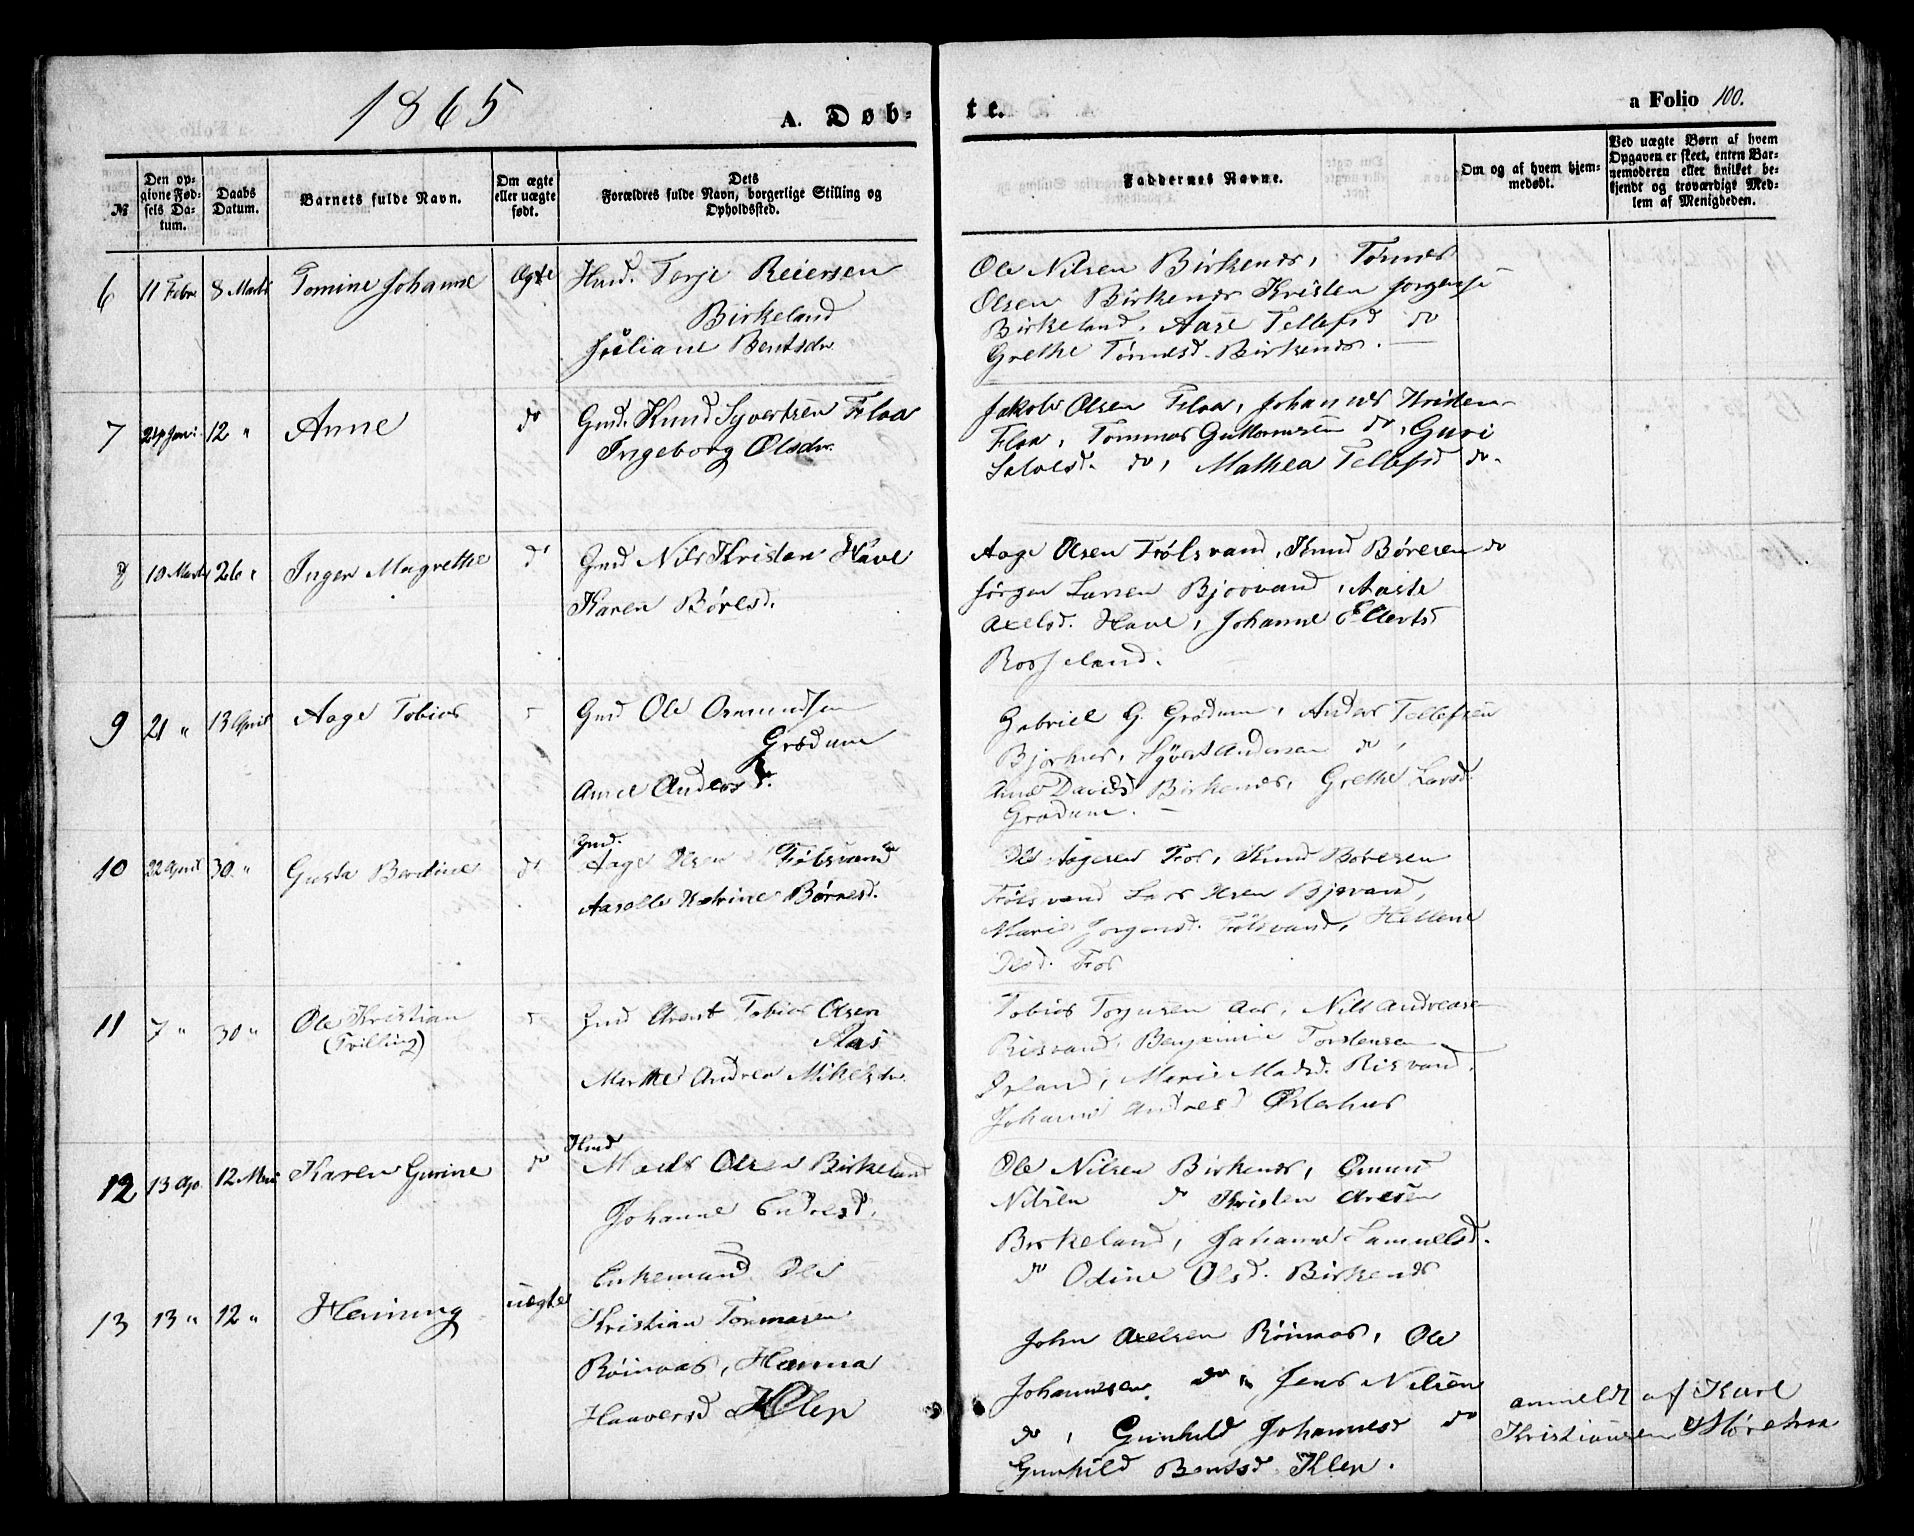 1865
A. Døb-
te.
a Folio 100.
№
Den op-
givne Fød-
sels Da-
tum.
Daabs
Datum.
Barnets fulde Navn.
Om ægte
eller uægte
født.
Dets
Forældres fulde Navn, borgerlige Stilling og
Opholdssted.
Faddernes Navne.
Om og af hvem hjem-
medøbt.
Ved uægte Børn af hvem
Opgaven er skeet, enten Bar-
nemoderen eller hvilket be-
kjendt og troværdigt Med-
lem af Menigheden.
6 11 Febr 8 Marts Tomine Johanne Ægte Hmd. Terje Reiersen
Birkeland
Juliane Bentsdr.
Ole Nilsen Birkenes, Tønnes
Olsen Birkenes Kristen Jørgens
Birkeland, Aase Tellefsd do
Grethe Tønnesd. Birkenes.
7 24 Jan. 12 " Anne do Gmd. Knud Syvertsen Flaa
Ingeborg Olsdr.
Jakob Olsen Flaa, Johannes Kristen
Flaa, Tommas Guttormsen do, Guri
Salvesd. do, Mathea Tellefsd do.
8 10 Marts 26 " Inger Magrethe do Gmd Nils Kristen Have
Karen Børesd.
Aage Olsen Følsvand, Knud Børesen do
Jørgen Larsen Bjorvand, Aaste
Axelsd. Have, Johanne Ellertsd
Rosseland.
9 21 " 13 April Aage Tobias Gmd Ole Osmundsen
Grødum
Anne Andersd.
Gabriel G. Grødum, Anders Tellefsen
Birkenes, Grethe Larsd.
Grødum.
10 22 April 30 " Gusta Berdine do Gmd.
Aage Olsen Følsvand
Katrine Børresd.
Ole Aagesen Fos, Knud Børesen
Følsvand Lars Olsen Bjorvand,
Marie Jørgensd. Følsvand, Hellene
Olsd. Fos
11 7 " 30 " Ole Kristian
(Tvilling)
Gmd Arent Tobias Olsen
Aas
Marthe Andrea Mikelsdr.
Tobias Aas, Nils Andreasen
Risvand, Benjamin Torstensen
Marie Madsd. Risvand,
Johanne Østerhus
12 13 Ap. 12 Mai Karen Gurine do Hmd
Mads Olsen Birkeland
Johanne Endresd.
Ole Nilsen Birkenes, Omund
Nilsen do Kristen
Birkeland, Johanne Samuelsd.
do Odine Olsd. Birkenes
13 13 " 12 " Henning uægte Enkemand Ole
Kristian Tommasen
Røinaas, Hanna
Haaversd Klep
John Axelsen Røinaas, Ole
Johannesen do, Jens Nilsen
do, Gunhild Johannesd do
Gunhild Bentsd Klep.
anmeldt af Karl
Kristiansen